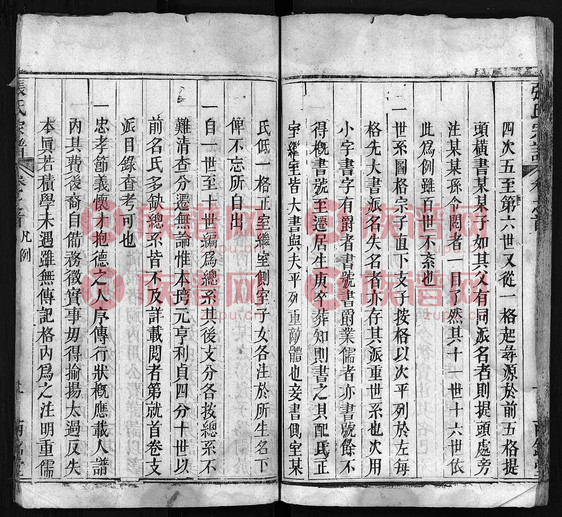 張氏宗譜
四次五至第六世又從一格起尋源於前五格提
頭橫書某某子如其父有同派名者則提頭處旁
注某某孫令閱者一目了然其十一世十六世依
此為例雖百世不紊也
一世系圖格宗子直下支子按格以次平列於左每
格先大書派名失名者亦存其派重世系也次用
小字書字有爵者書號書爵業儒者亦書號餘不
得概書號至遷居生庚卒葬知則書之其配氏正
室繼室皆大書與夫平列重敵體也妾書側室某
氏低一格正室繼室側室子女各注於所生名下
俾不忘所自出
一自一世至十世編為總系其後支分各按總系不
難清查分遷無論惟本琦元亨利貞四分十世以
前名氏多缺總系皆不及詳載閱者第就首卷支
派目錄查考可也
一忠孝節義懷才抱德之人序傳行狀概應載人譜
內其費後裔自備務徵實事毋得揄揚太過反失
本眞若積學未遇雖無傳記格內為之注明重儒
張氏宗譜
凡例
族谱网
zupu.cn